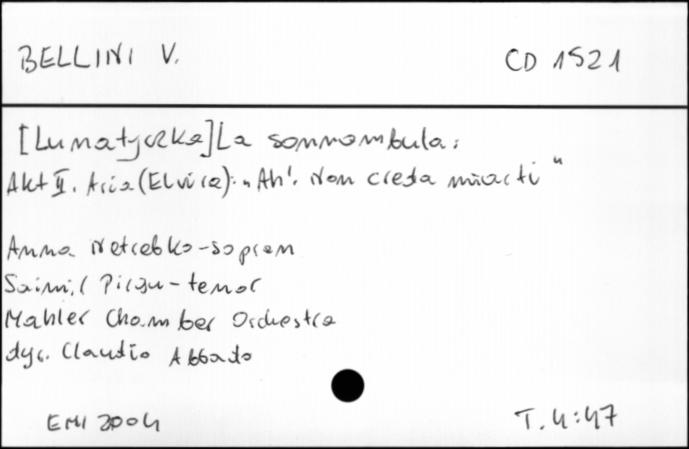 BELLINI V. CD 1521
[Lunatyczka] La sonnambula:
Akt II. Aria (Elvira): "Ah! Non creda miarti"
Anna Netrebko - sopran
Saimir Pirgu - tenor
Mahler Chamber Orchestra
dyr. Claudio Abbado
EMI 2004 T. 4:47